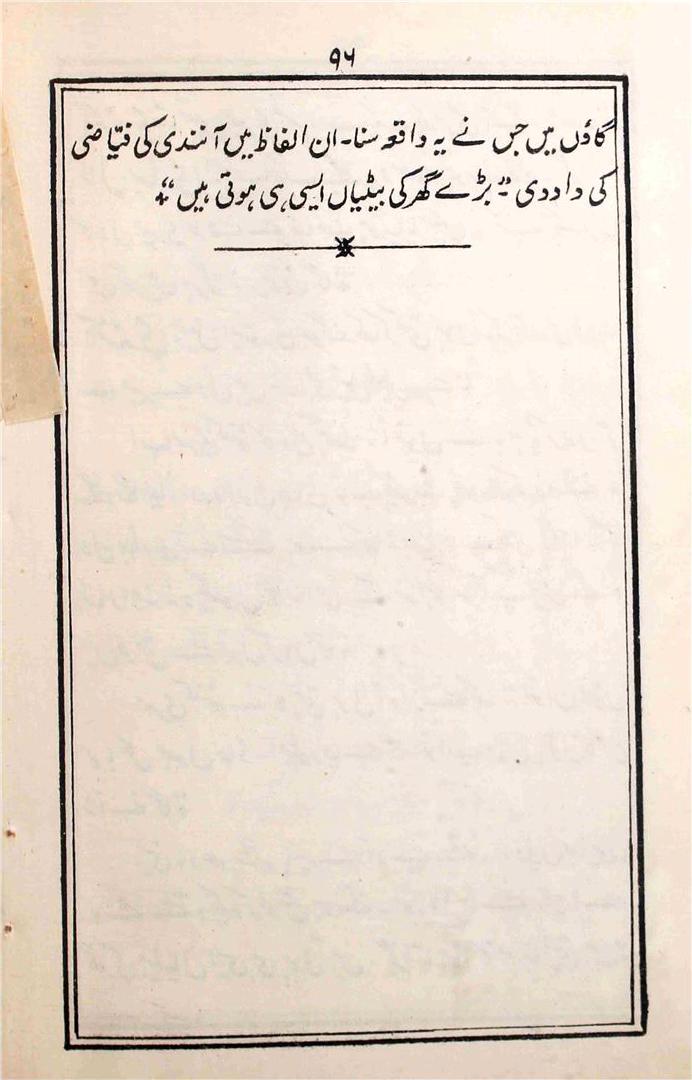 ۹۶
گاؤں میں جس نے یہ واقعہ سنا۔ ان الفاظ میں آنندی کی فیّاضی
کی داد دی "بڑے گھر کی بیٹیاں ایسی ہی ہوتی ہیں"